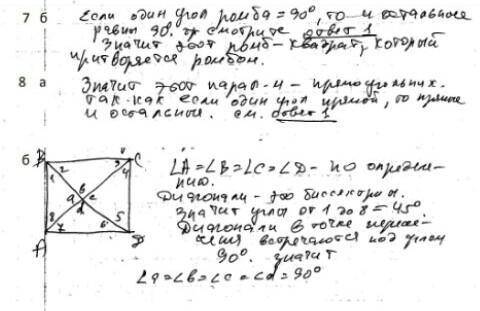 7 б Если один угол ромба = 90°, то и остальные
равны 90. смотрите ответ 1
Значит этот ромб - квадрат, который
притворяется ромбом.
8 а Значит этот парал-м - прямоугольник.
так как если один угол прямой, то прямые
и остальные. см. ответ 1
б B 1 2 3 C 4
a b c d
8 7 6 5
A D
∠A = ∠B = ∠C = ∠D - по определе-
нию.
Диагонали - это биссектрисы.
Значит углы от 1 до 8 = 45°
Диагонали в точке пересе-
чения встречаются под углом
90°. значит
∠a = ∠b = ∠c = ∠d = 90°